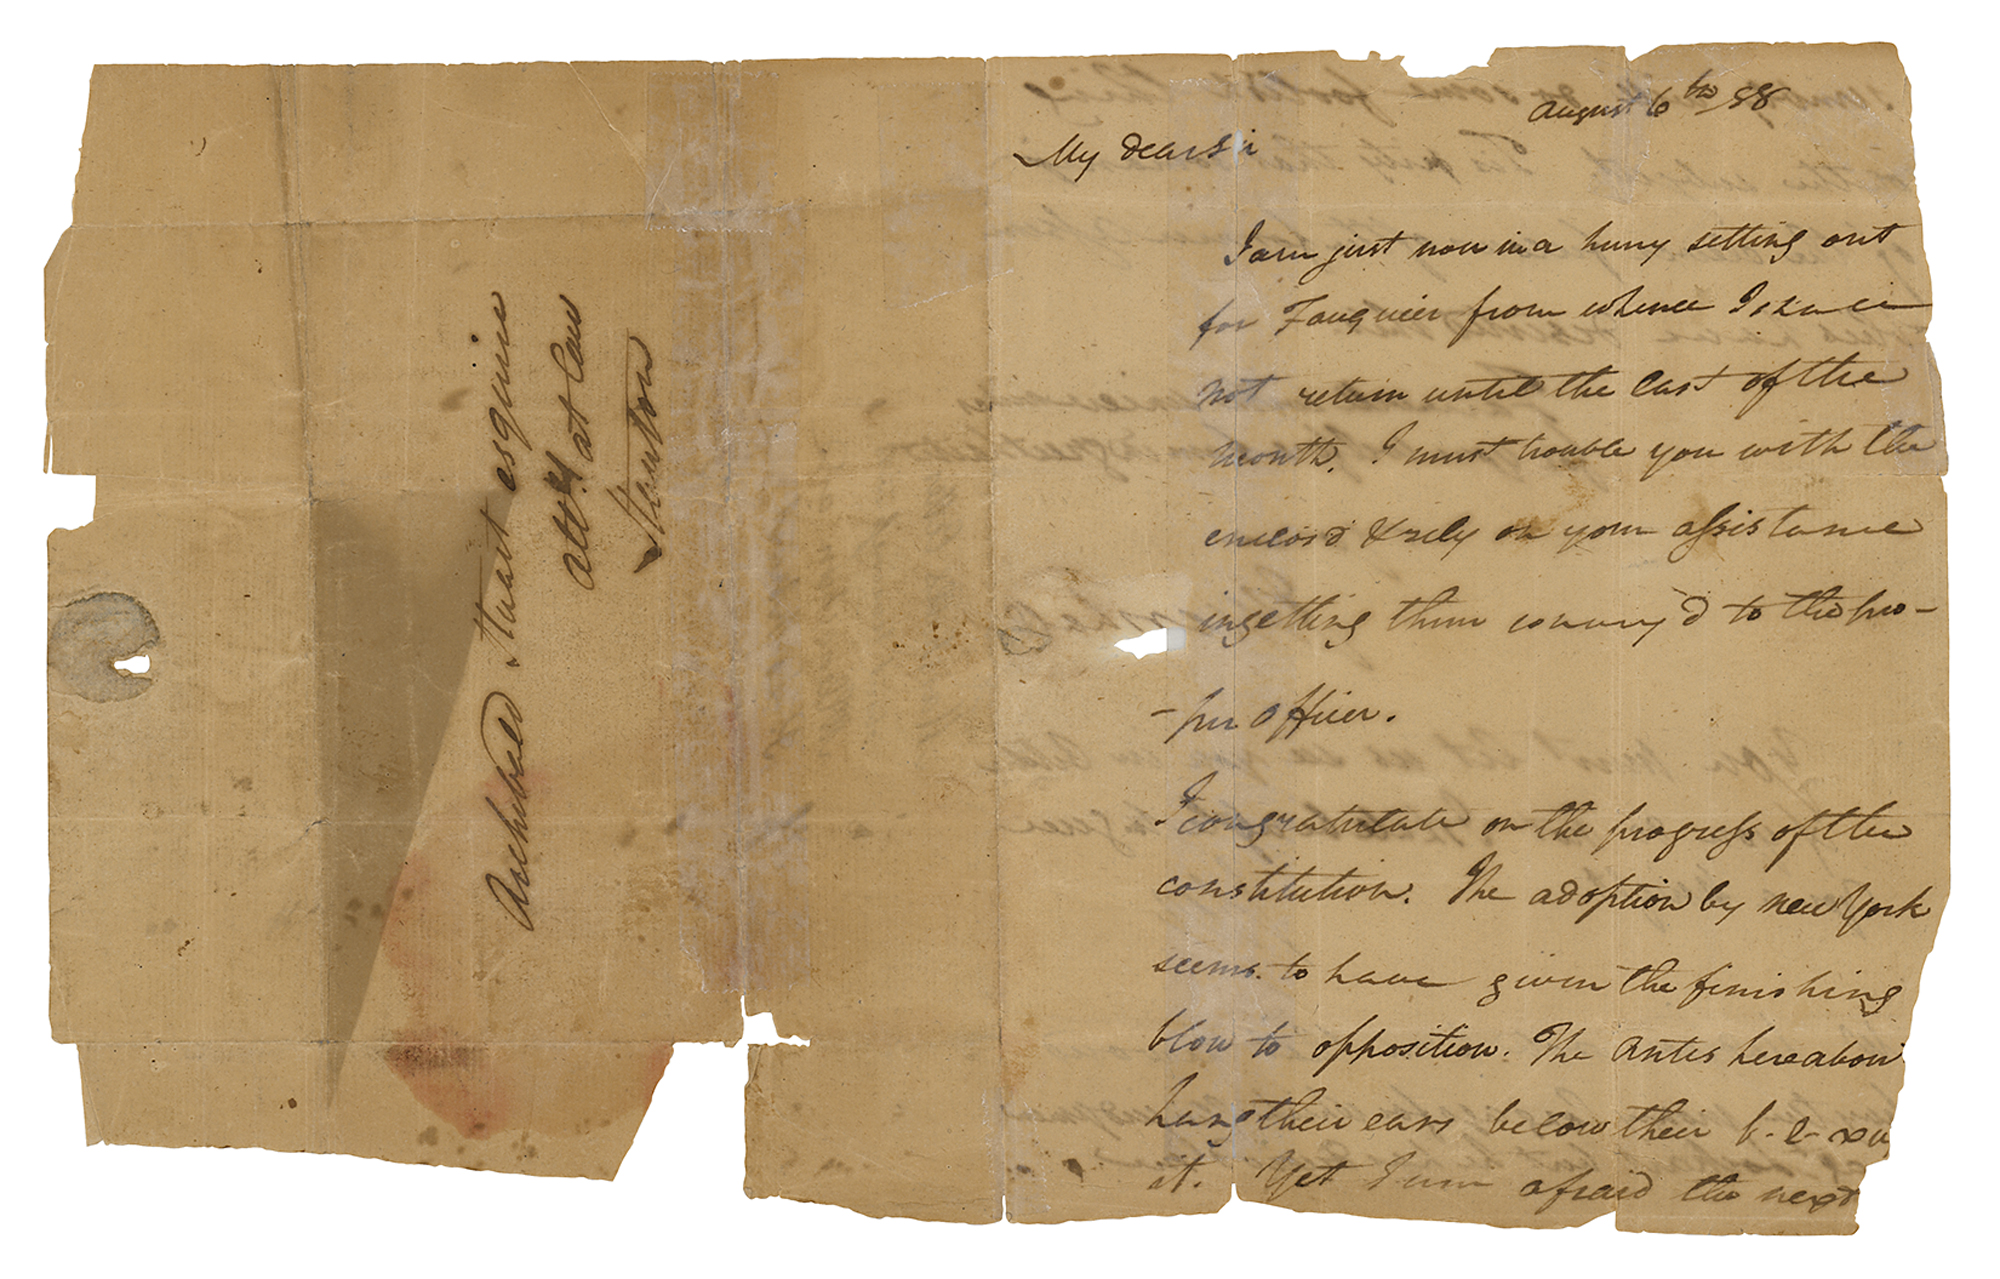 Archibald Stuart esquire
atto'y at Law
Staunton
August 6th 88
My dear Sir
I am just now in a hurry setting out
for Fauquier from whence I shall
not return until the last of the
month. I must trouble you with the
enclos'd & rely on your assistance
in getting them convey'd to the pro-
-per officer.
I congratulate on the progress of the
constitution. The adoption by new York
seems to have given the finishing
blow to opposition. The antis hereabout
hang their ears below their
Yet I am afraid the next